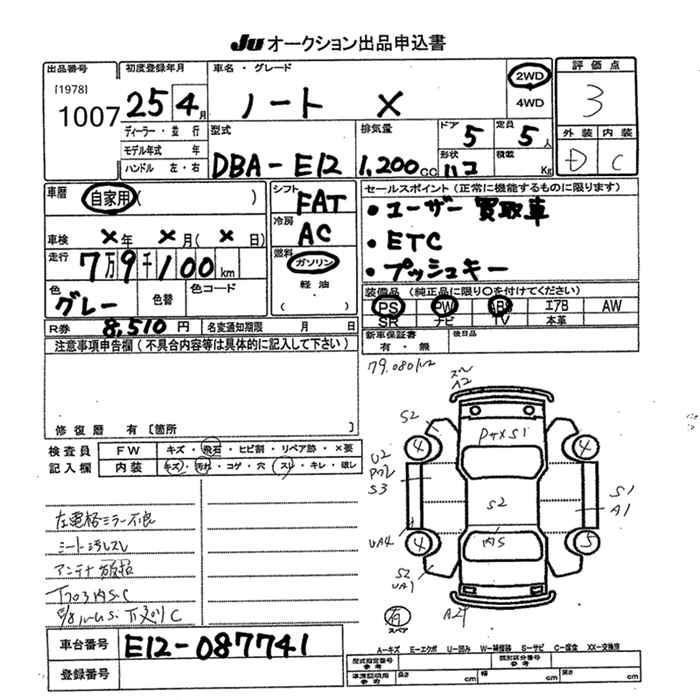 Ju オークション出品申込書
出品番号 初度登録年月 車名・グレード 評価点
[1978]
1007 25年 4月 ノート X 2WD 4WD 3
ディーラー・並行 型式 排気量 ドア 5 定員 5人 外装 内装
モデル年式 年
ハンドル 左・右 DBA-E12 1,200cc 形状 ハコ 積載 Kg D C
車歴 自家用 ( ) シフト FAT セールスポイント (正常に機能するものに限ります)
・ユーザー買取車
車検 X年 X月 ( X 日) 冷房 AC ・ETC
走行 7万9千100km 燃料 ガソリン ・プッシュキー
色 グレー 色替 色コード 軽油 ( )
装備品 (純正品に限り○を付けてください)
PS PW ABS エアB AW
SR ナビ TV 本革
R券 8,510円 名変通知期限 月 日
新車保証書 有・無 後日品
注意事項申告欄 (不具合内容等は具体的に記入して下さい)
79.080km
修復歴 有 [箇所
検査員記入欄 FW キズ・飛石・ヒビ割・リペア跡・X要
内装 キズ・汚れ・コゲ・穴・スレ・キレ・戻レ
A2
S2
4 4
U2
S3
S2
S1
A1
UA4
4 5
S2
UA1
スペア
左電格ミラー不良
シート汚レスレ
アンテナ欠損
車台番号 E12-087741
登録番号
A-キズ E-エクボ U-凹み W-補修跡 S-サビ C-腐食 XX-交換済
型式指定番号 参考 類別区分番号 参考
車庫証明用 参考 長さ cm 幅 cm 高さ cm